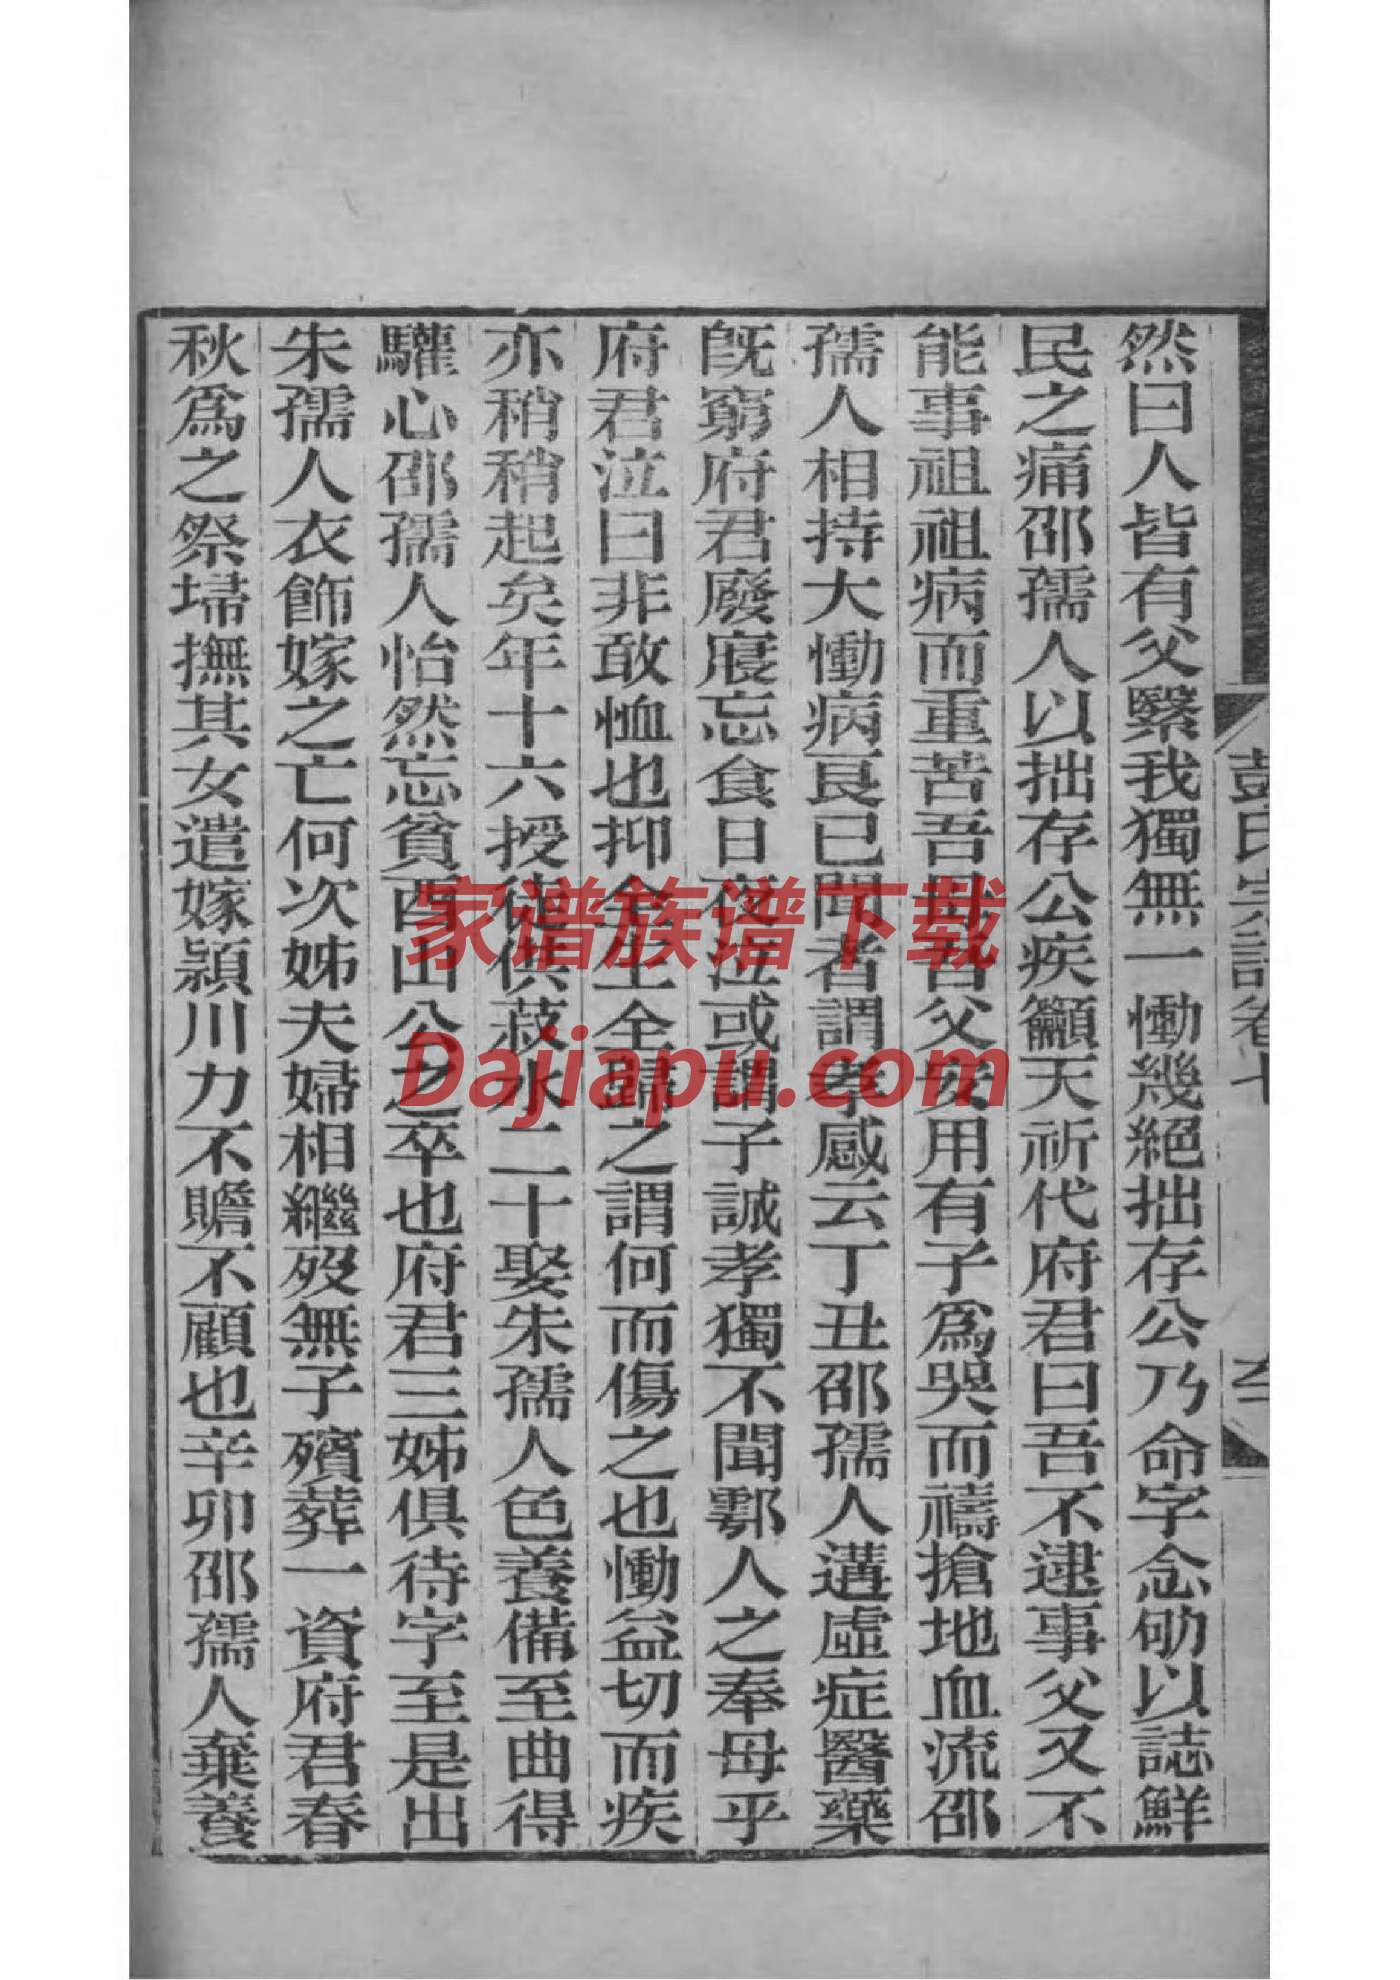 然曰人皆有父緊我獨無一慟幾絕拙存公乃命字念劬以誌鮮
民之痛邵孺人以拙存公疾籲天祈代府君曰吾不逮事父又不
能事祖祖病而重苦吾母吾父安用有子爲哭而禱搶地血流邵
孺人相持大慟病良已聞者謂孝感云丁丑邵孺人遘虛症醫藥
既窮府君廢寢忘食日夜泣或謂子誠孝獨不聞鄠人之奉母乎
府君泣曰非敢恤也抑全生全歸之謂何而傷之也慟益切而疾
亦稍稍起矣年十六授徒供菽水二十娶朱孺人色養備至曲得
驩心邵孺人怡然忘貧酉山公之卒也府君三姊俱待字至是出
朱孺人衣飾嫁之亡何次姊夫婦相繼歿無子殯葬一資府君春
秋爲之祭埽撫其女遣嫁潁川力不贍不顧也辛卯邵孺人棄養
彭氏宗譜卷七
家谱族谱下载
Dajiapu.com